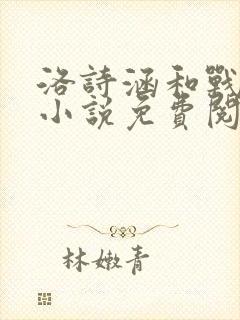 洛詩涵和戰
小說免費閱
林嫩青